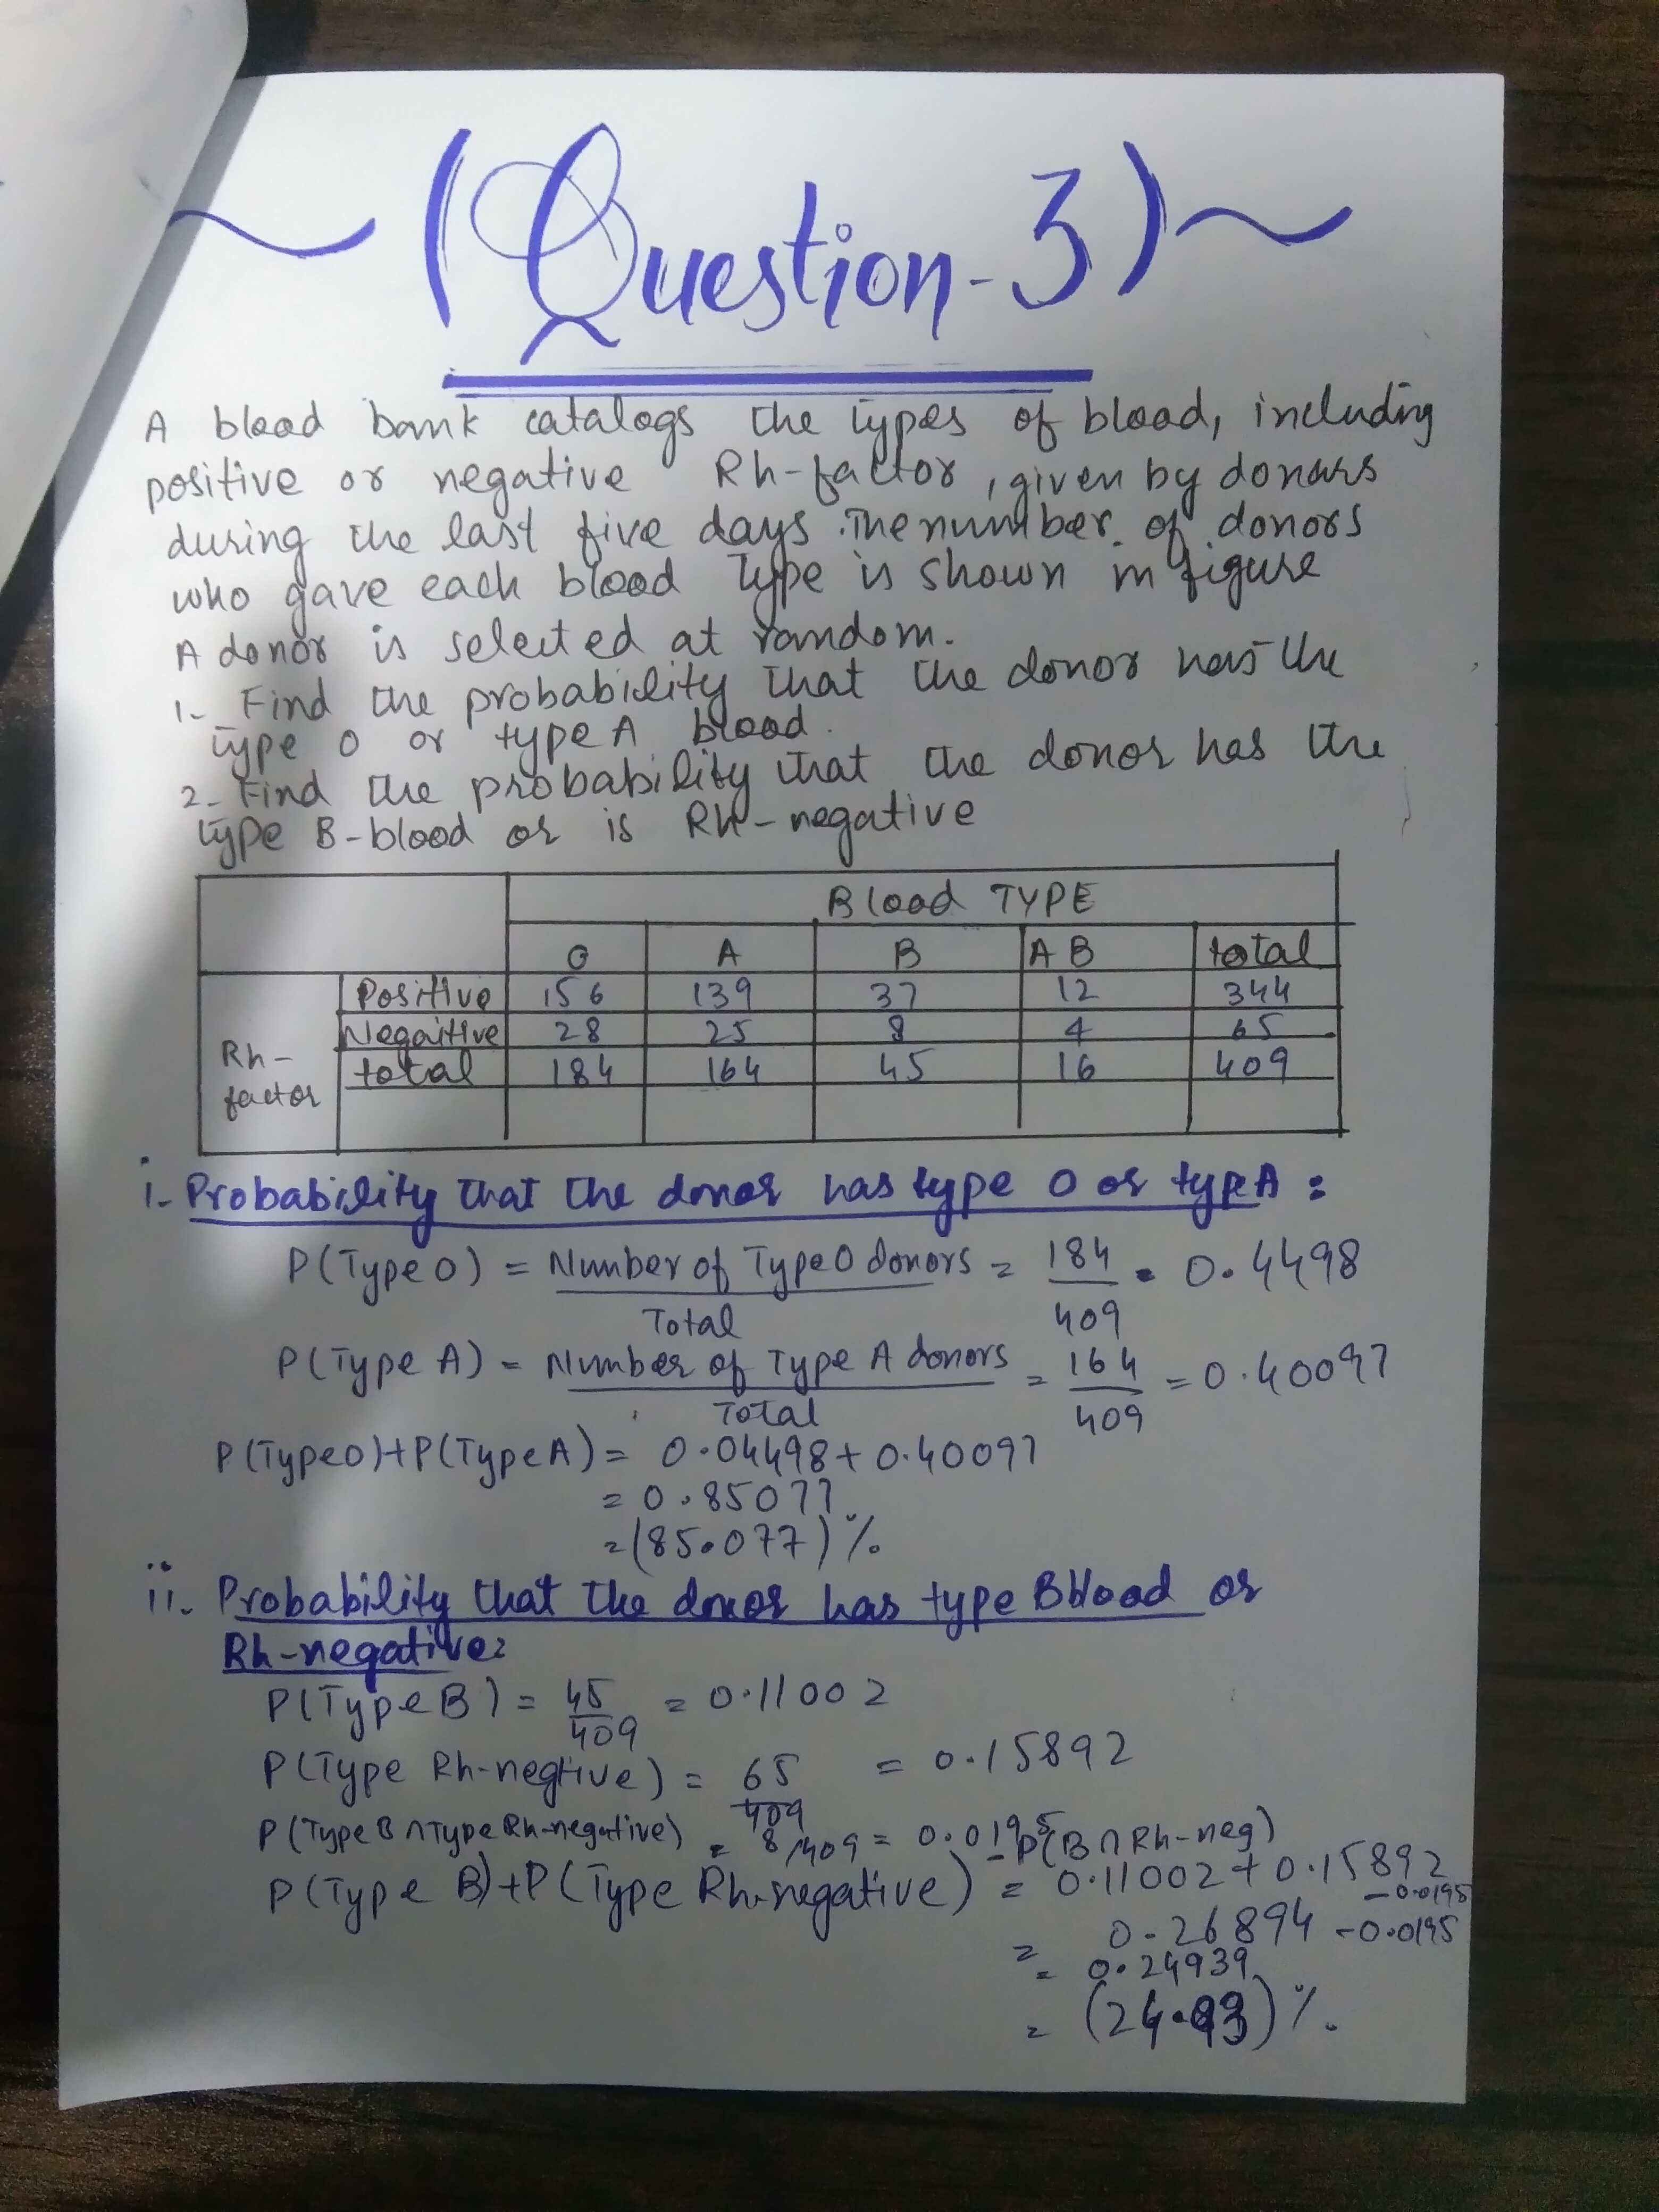 ~(Question-3)~
A blood bank catalogs the types of blood, including
positive or negative Rh-factor, given by donars
during the last five days. The number. of donors
who gave each blood Type is shown in figure
A donor is selected at random.
1- Find the probability that the donor has the
type O or type A blood.
2- Find the probability that the donor has the
type B-blood or is Rh-negative
Blood TYPE
O A B AB total
Positive 156 139 37 12 344
Negaitive 28 25 8 4 65
Rh-factor total 184 164 45 16 409
i- Probability that the donor has type O or type A :
P(Type O) = Number of Type O donors / Total = 184/409 = 0.4498
P(Type A) = Number of Type A donors / Total = 164/409 = 0.40097
P(Type O)+P(Type A) = 0.04498+0.40097
= 0.85077
= (85.077)%
ii- Probability that the donor has type B blood or
Rh-negative:
P(Type B) = 45/409 = 0.11002
P(Type Rh-negtive) = 65/409 = 0.15892
P(Type B ∩ Type Rh-negative) = 8/409 = 0.0195
- P(B ∩ Rh-neg)
P(Type B)+P(Type Rh-negative) = 0.11002+0.15892
-0.0195
= 0.26894 -0.0195
= 0.24939
= (24.93)%